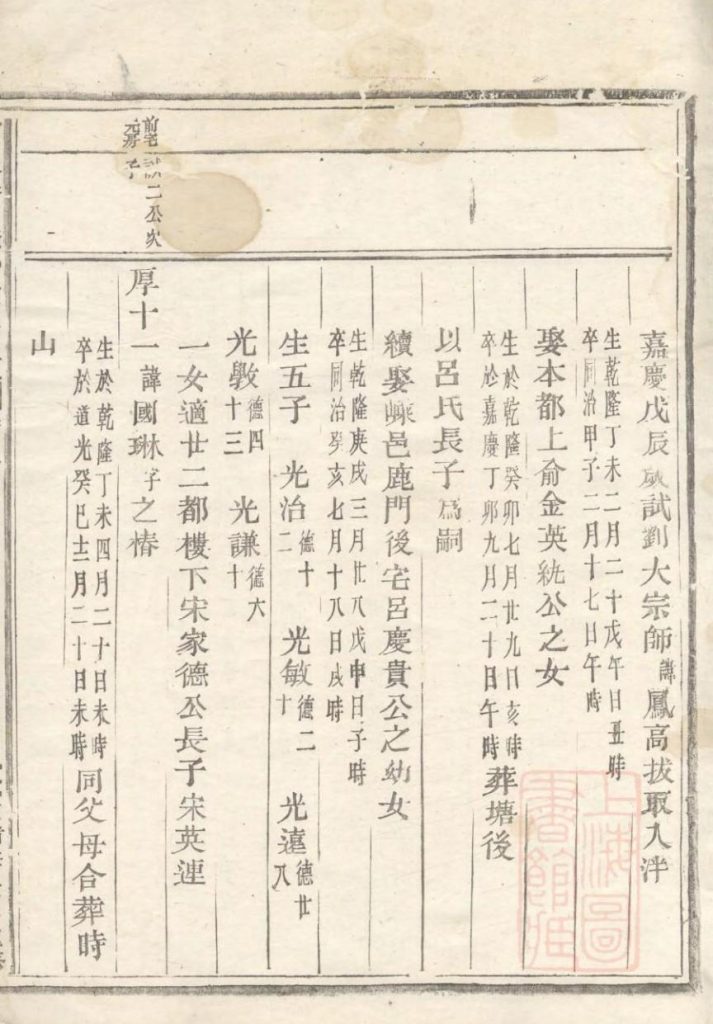 嘉慶戊辰歲試劉大宗師諱鳳高拔取入泮
生乾隆丁未二月二十戊午日丑時
卒同治甲子二月十七日午時
娶本都上俞金英統公之女
生於乾隆癸卯七月廿九日亥時
卒於嘉慶丁卯九月二十日午時葬塘後
以呂氏長子爲嗣
續娶嵊邑鹿門後宅呂慶貴公之幼女
生乾隆庚戌三月廿八戊申日子時
卒同治癸亥七月十八日戌時
生五子 光治德十二 光敏德二十 光遠德廿八
光斆德四十三 光謙德六十
一女適廿二都樓下宋家德公長子宋英連
二公次
子
厚十一諱國琳字之椿
生於乾隆丁未四月二十日未時
卒於道光癸巳十二月二十日未時同父母合葬時
山
上海圖
書館